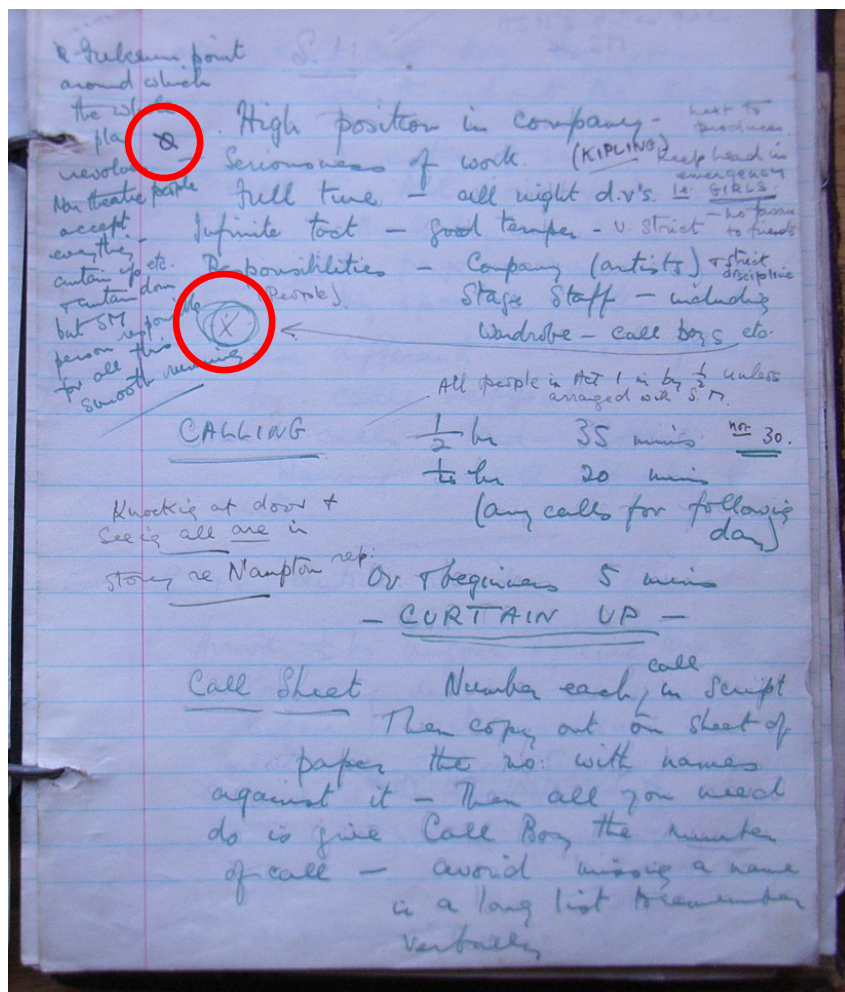 S.M.
Fulcrum point
around which
the whole
play
revolves
Non theatre people
accept
everything -
curtain up etc.
+ curtain down
but SM
person responsible
for all this
smooth running
High position in company - next to
producer.
- Seriousness of work. (KIPLING) Keep head in
emergency
Full time - all night d.r's. i.e. GIRLS.
Infinite tact - good temper - v. strict - no favours
to friends
Responsibilities - Company (artists) + strict
discipline
(People).
Stage Staff - including
X
Wardrobe - call boys etc.
All people in Act 1 in by 1/2 unless
arranged with S.M.
CALLING
1/2 hr 35 mins not 30.
1/4 hr 20 mins
(any calls for following
day)
Knocking at door +
Seeing all are in
story re N'ampton rep.
Ov + beginners 5 mins
- CURTAIN UP -
Call Sheet Number each call in script
Then copy out on sheet of
paper the no: with names
against it - Then all you need
do is give Call Boy the number
of call - avoid missing a name
in a long list to remember
verbally